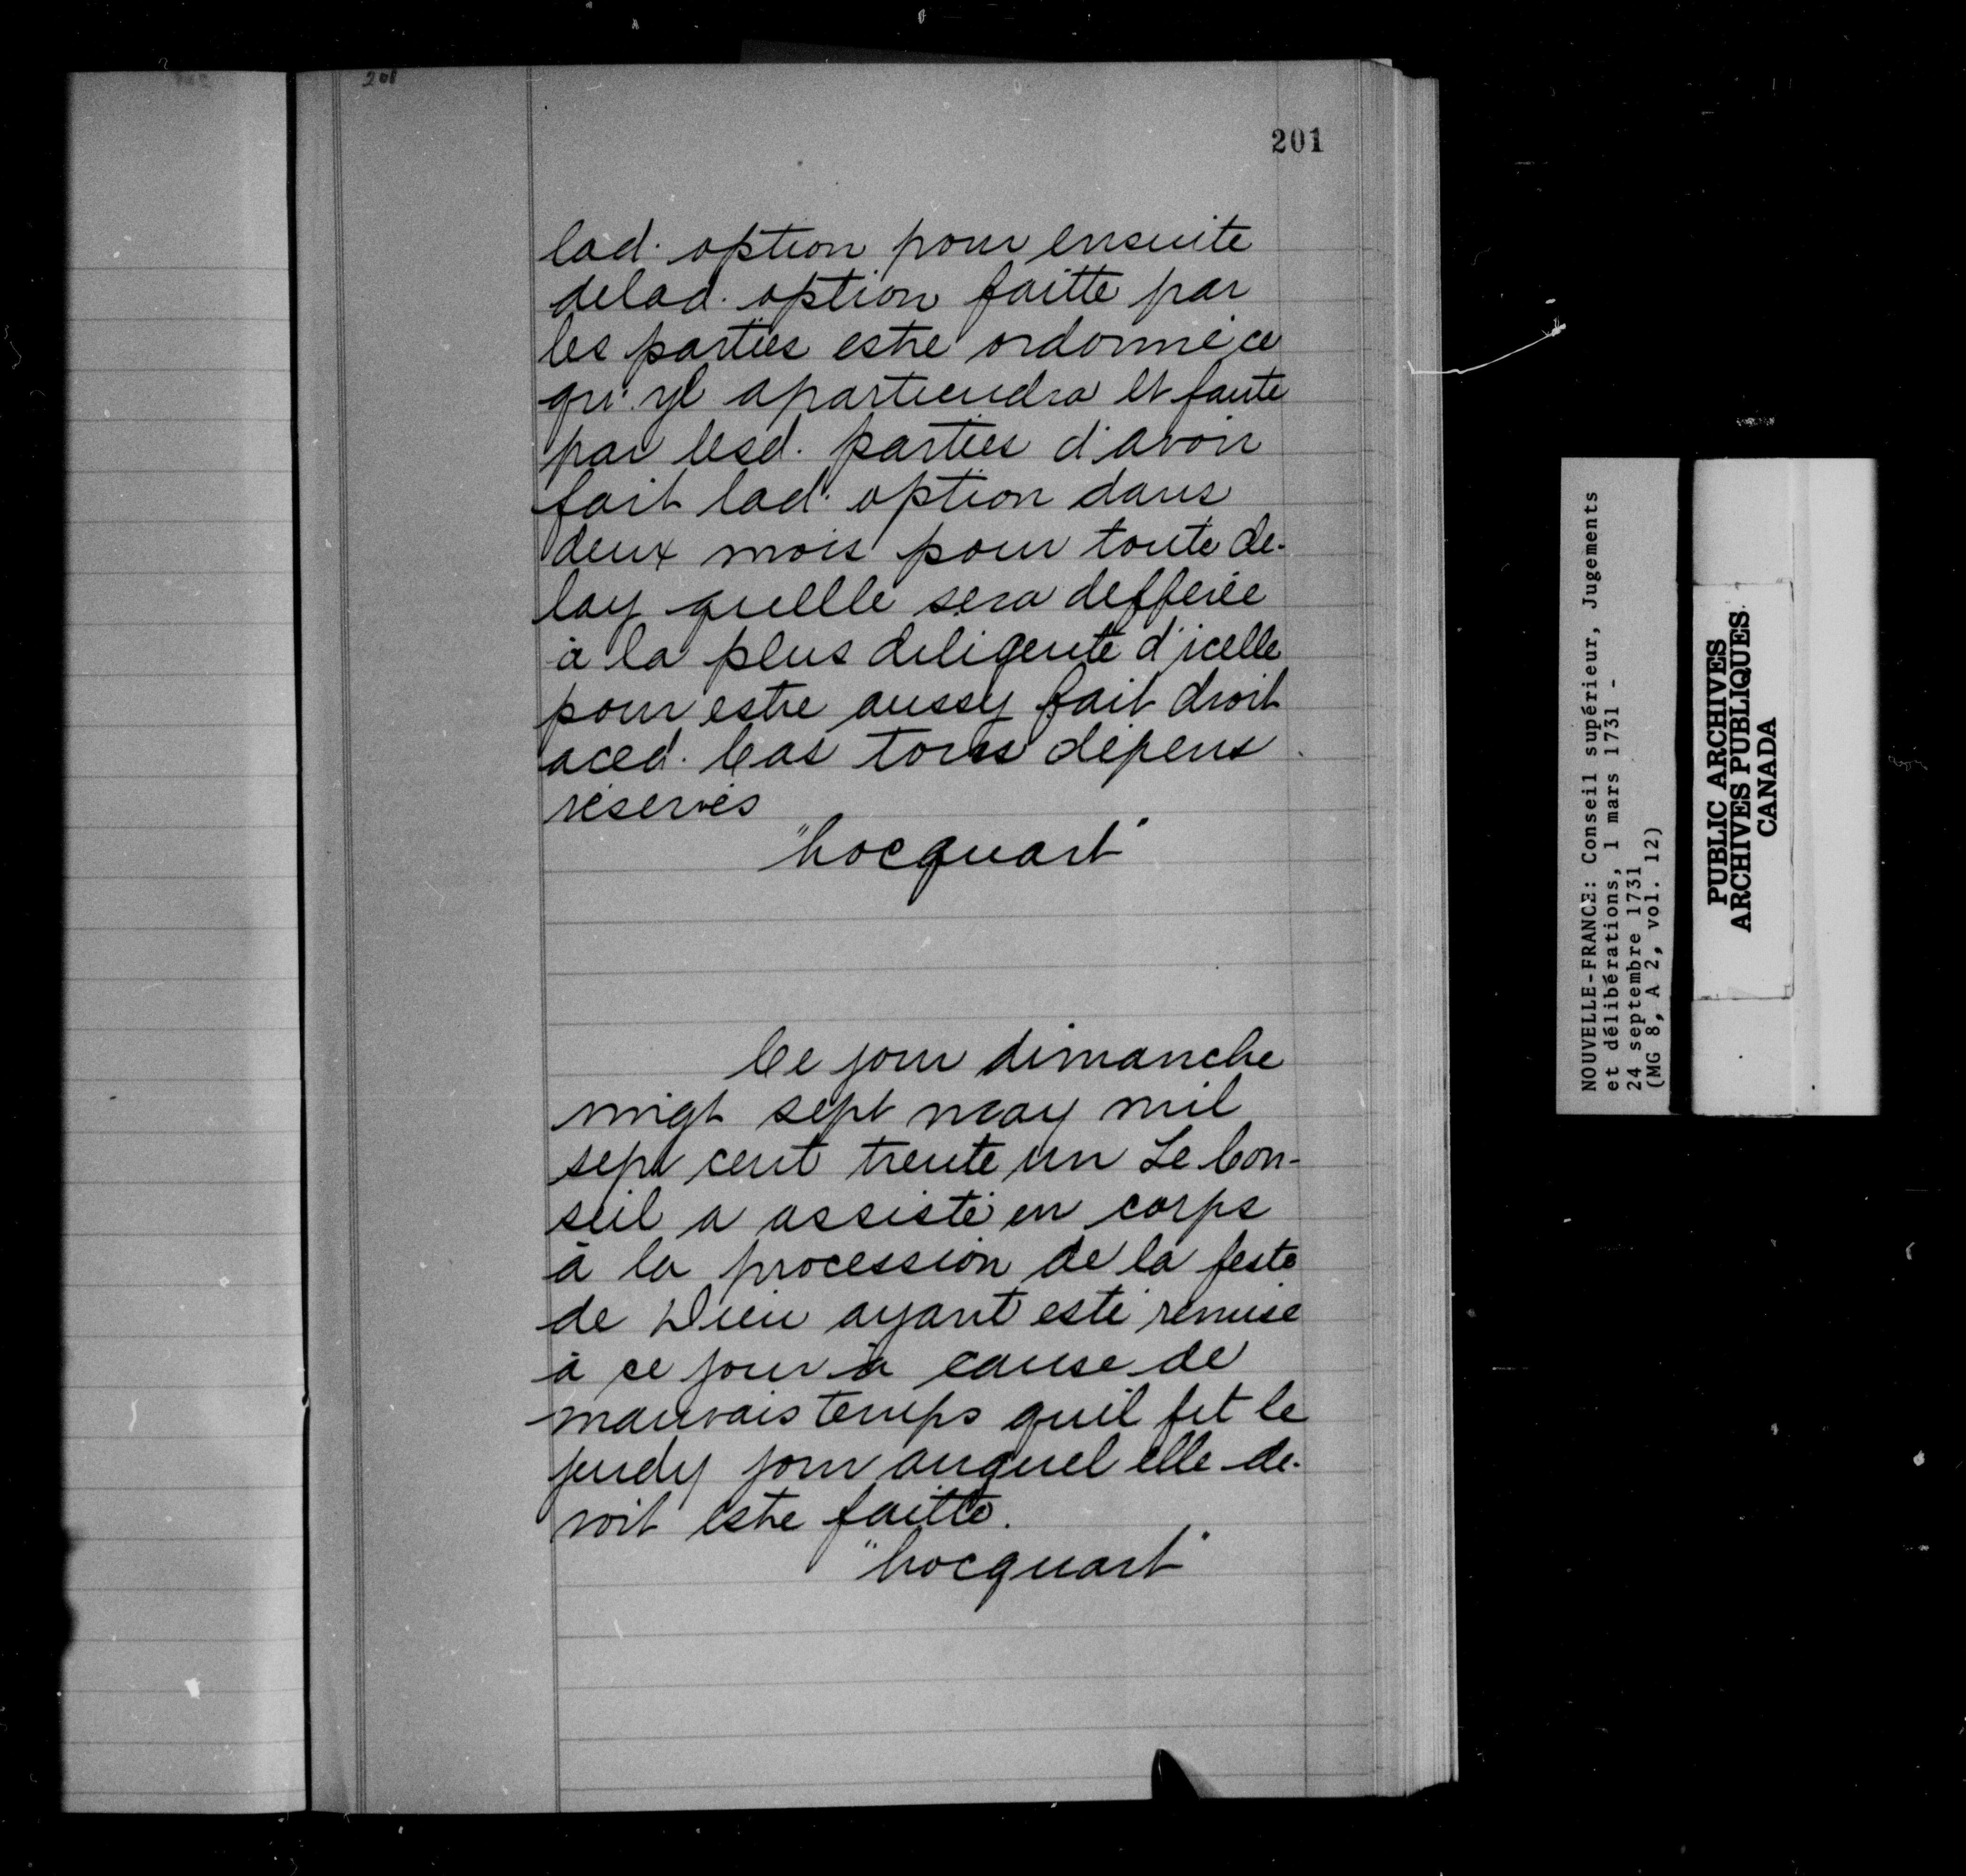 201
201
lad. option pour ensuite
delad. option faitte par
les parties estre ordonné ce
qu'yl apartiendra et faute
par lesd. parties d'avoir
fait lad. option dans
deux mois pour toute de-
lay quelle sera defferée
à la plus diligente d'icelle
pour estre aussy fait droit
aced. Cas tous dépens
réservés
"hocquart"
Ce jour dimanche
vingt sept may mil
sept cent trente un Le Con-
seil a assisté en corps
à la procession de la feste
de Dieu ayant esté remise
à ce jour à cause de
mauvais temps quil fit le
jeudy jour auquel elle de-
voit estre faitte.
"hocquart"
NOUVELLE-FRANCE: Conseil supérieur, Jugements
et délibérations, 1 mars 1731 -
24 septembre 1731
(MG 8, A 2, vol. 12)
PUBLIC ARCHIVES
ARCHIVES PUBLIQUES
CANADA